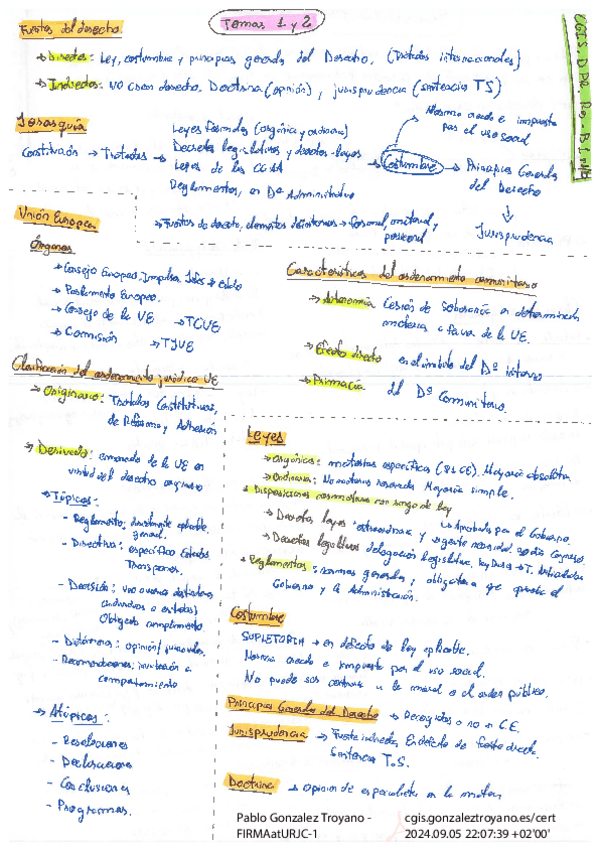 Temas 1 y 2
Fuentes del derecho.
→ Directas: Ley, costumbre y principios generales del Derecho. (Tratados internacionales)
→ Indirectas: NO crean derecho. Doctrina (opinión), jurisprudencia (sentencias TS)
Jerarquía
Constitución → Tratados →
Leyes formales (orgánica y ordinaria)
Decretos legislativos y decretos-leyes
Leyes de las CCAA
Reglamentos, en Dº Administrativo
→ Costumbre
Norma creada e impuesta
por el uso social
→ Principios Generales
del Derecho
Jurisprudencia
→ Fuentes de derecho, elementos → Personal, material y
Unión Europea
Órganos
→ Consejo Europeo. Impulsa. Jefes
→ Parlamento Europeo.
→ Consejo de la UE → TCUE
→ Comisión → TJUE
Características del ordenamiento comunitario
→ Autonomía Cesión de soberanía en determinada
materia a favor de la UE.
→ Efecto directo en el ámbito del Dº interno
→ Primacía del Dº Comunitario.
Clasificación del ordenamiento jurídico UE
→ Originario: Tratados Constitutivos,
de Reforma y Adhesión
→ Derivado: emanado de la UE en
virtud del derecho originario
→ Típicos:
- Reglamento: directamente aplicable.
general.
- Directiva: específico Estados
- Decisión: uno o varios destinatarios
(individuos o estados)
Obligado cumplimiento
- Dictámenes: opinión/
- Recomendaciones: invitación a
comportamiento
→ Atípicos:
- Resoluciones
- Declaraciones
- Conclusiones
- Programas.
Leyes
→ Orgánicas: materias específicas (81 CE). Mayoría absoluta
→ Ordinarias: No materia reservada Mayoría simple.
→ Disposiciones normativas con rango de ley
→ Aprobados por el Gobierno.
→ Decretos leyes: extraordinaria y urgente necesidad. 30 días Congreso.
→ Decretos legislativos delegación legislativa. Ley Bases → T. Articulados
→ Reglamentos: normas generales, obligatoria que aprueba el
Gobierno y la Administración.
Costumbre
SUPLETORIA → en defecto de ley aplicable.
Norma creada e impuesta por el uso social.
No puede ser contraria a la moral o al orden público.
Principios Generales del Derecho → Recogidos o no en C.E.
Jurisprudencia → Fuente indirecta. En defecto de fuente directa.
Sentencias T.S.
Doctrina → Opinión de especialistas en la materia
Pablo Gonzalez Troyano - cgis.gonzaleztroyano.es/cert
FIRMAatURJC-1 2024.09.05 22:07:39 +02'00'